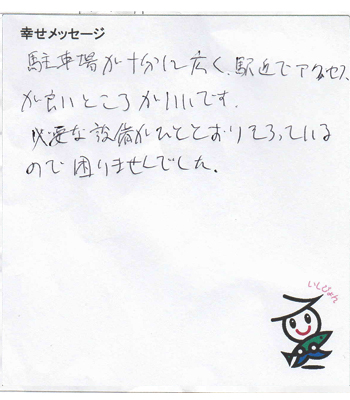 幸せメッセージ
駐車場が十分に広く、駅近でアクセス
が良いところがいいです。
必要な設備がひととおりそろっている
ので困りませんでした。
いしじょん